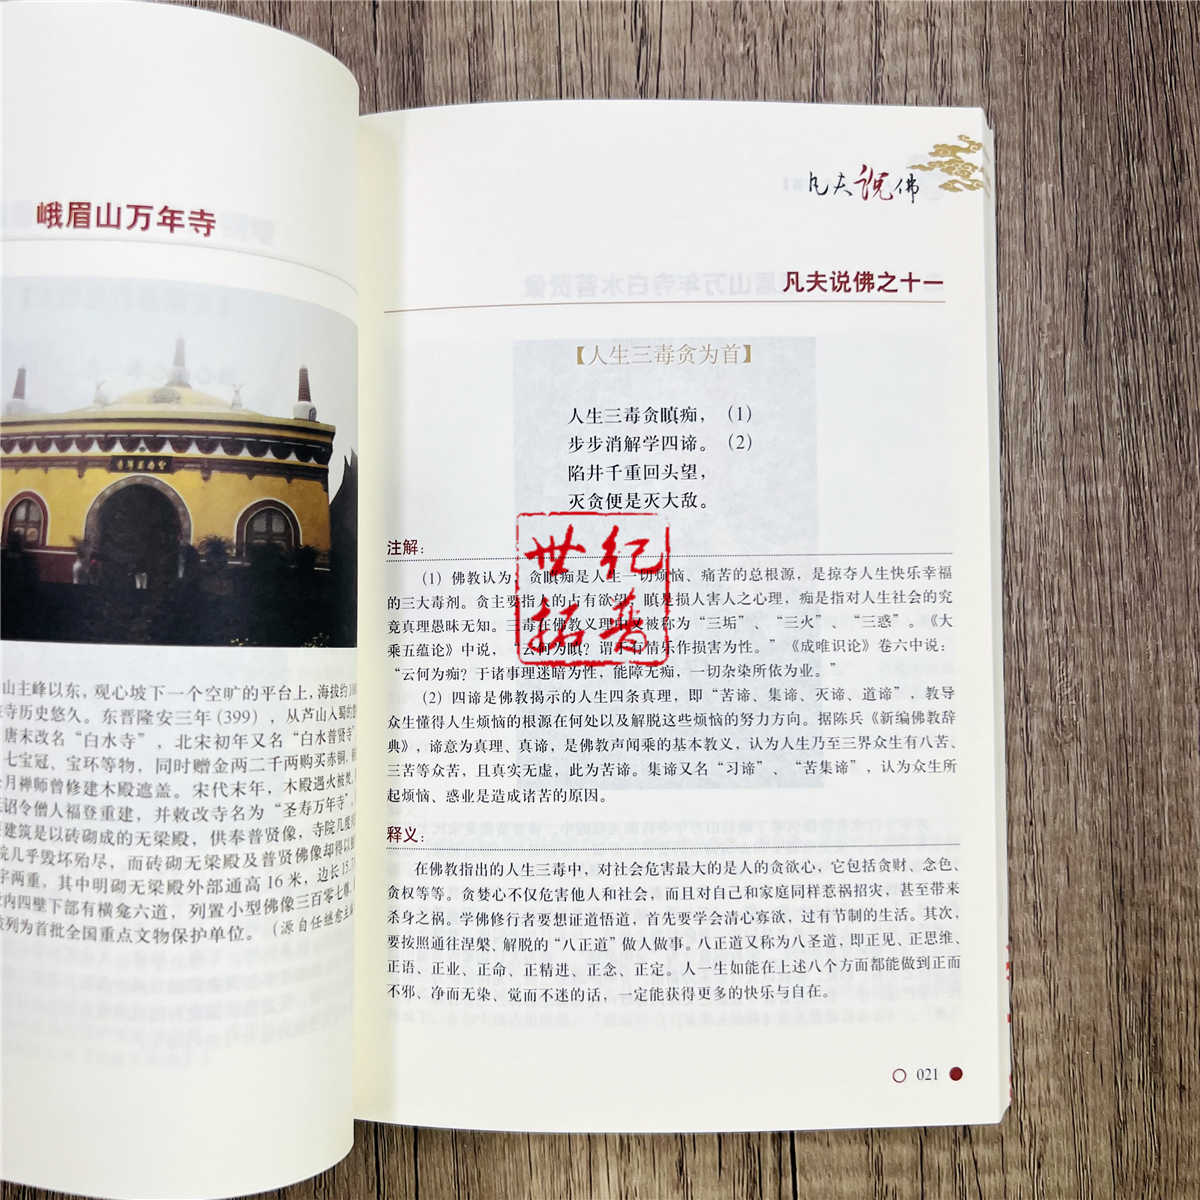 峨眉山万年寺
普贤愿海
山主峰以东，观心坡下一个空旷的平台上，海拔约
寺历史悠久。东晋隆安三年（399），从芦山入蜀的
唐末改名“白水寺”，北宋初年又名“白水普贤寺”
七宝冠、宝环等物，同时赠金两二千两购买赤铜，
月禅师曾修建木殿遮盖。宋代末年，木殿遇火被焚，
诏令僧人福登重建，并敕改寺名为“圣寿万年寺”，
建筑是以砖砌成的无梁殿，供奉普贤像，寺院几度
院几乎毁坏殆尽，而砖砌无梁殿及普贤佛像却得以
字两重，其中明砌无梁殿外部通高16米，边长15.7
内四壁下部有横龛六道，列置小型佛像三百零七尊，
列为首批全国重点文物保护单位。（源自任继愈
凡夫说佛
凡夫说佛之十一
【人生三毒贪为首】
人生三毒贪瞋痴，（1）
步步消解学四谛。（2）
陷井千重回头望，
灭贪便是灭大敌。
世纪
拓普
注解：
（1）佛教认为，贪瞋痴是人生一切烦恼、痛苦的总根源，是掠夺人生快乐幸福
的三大毒剂。贪主要指人的占有欲望，瞋是损人害人之心理，痴是指对人生社会的究
竟真理愚昧无知。三毒在佛教义理中又被称为“三垢”、“三火”、“三惑”。《大
乘五蕴论》中说，“云何为瞋？谓于有情乐作损害为性。”《成唯识论》卷六中说：
“云何为痴？于诸事理迷暗为性，能障无痴，一切杂染所依为业。”
（2）四谛是佛教揭示的人生四条真理，即“苦谛、集谛、灭谛、道谛”，教导
众生懂得人生烦恼的根源在何处以及解脱这些烦恼的努力方向。据陈兵《新编佛教辞
典》，谛意为真理、真谛，是佛教声闻乘的基本教义，认为人生乃至三界众生有八苦、
三苦等众苦，且真实无虚，此为苦谛。集谛又名“习谛”、“苦集谛”，认为众生所
起烦恼、惑业是造成诸苦的原因。
释义：
在佛教指出的人生三毒中，对社会危害最大的是人的贪欲心，它包括贪财、念色、
贪权等等。贪婪心不仅危害他人和社会，而且对自己和家庭同样惹祸招灾，甚至带来
杀身之祸。学佛修行者要想证道悟道，首先要学会清心寡欲，过有节制的生活。其次，
要按照通往涅槃、解脱的“八正道”做人做事。八正道又称为八圣道，即正见、正思维、
正语、正业、正命、正精进、正念、正定。人一生如能在上述八个方面都能做到正而
不邪、净而无染、觉而不迷的话，一定能获得更多的快乐与自在。
021